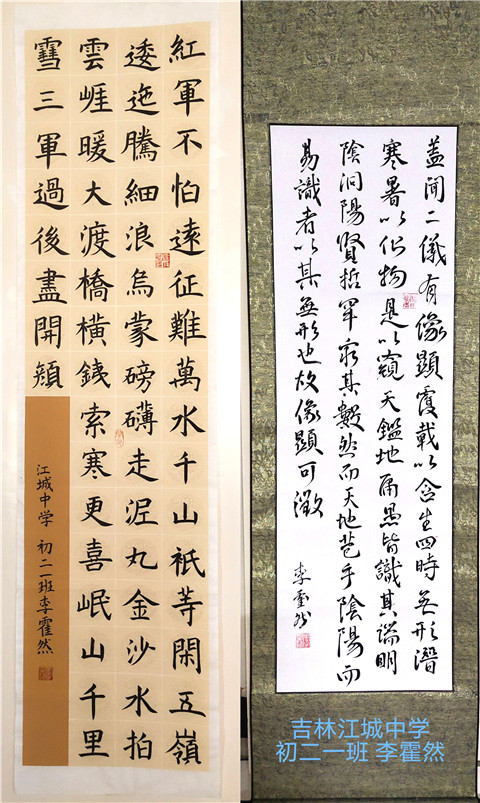 紅軍不怕遠征難萬水千山衹等閑五嶺
逶迤騰細浪烏蒙磅礴走泥丸金沙水拍
雲崕暖大渡橋橫鐵索寒更喜岷山千里
雪三軍過後盡開顏
江城中学 初二一班李霍然
蓋聞二儀有像顯覆載以含生四時無形潛
寒暑以化物是以窺天鑑地庸愚皆識其端明
陰洞陽賢哲罕窮其數然而天地苞乎陰陽而
易識者以其無形也故像顯可徵
李霍然
吉林江城中学
初二一班 李霍然